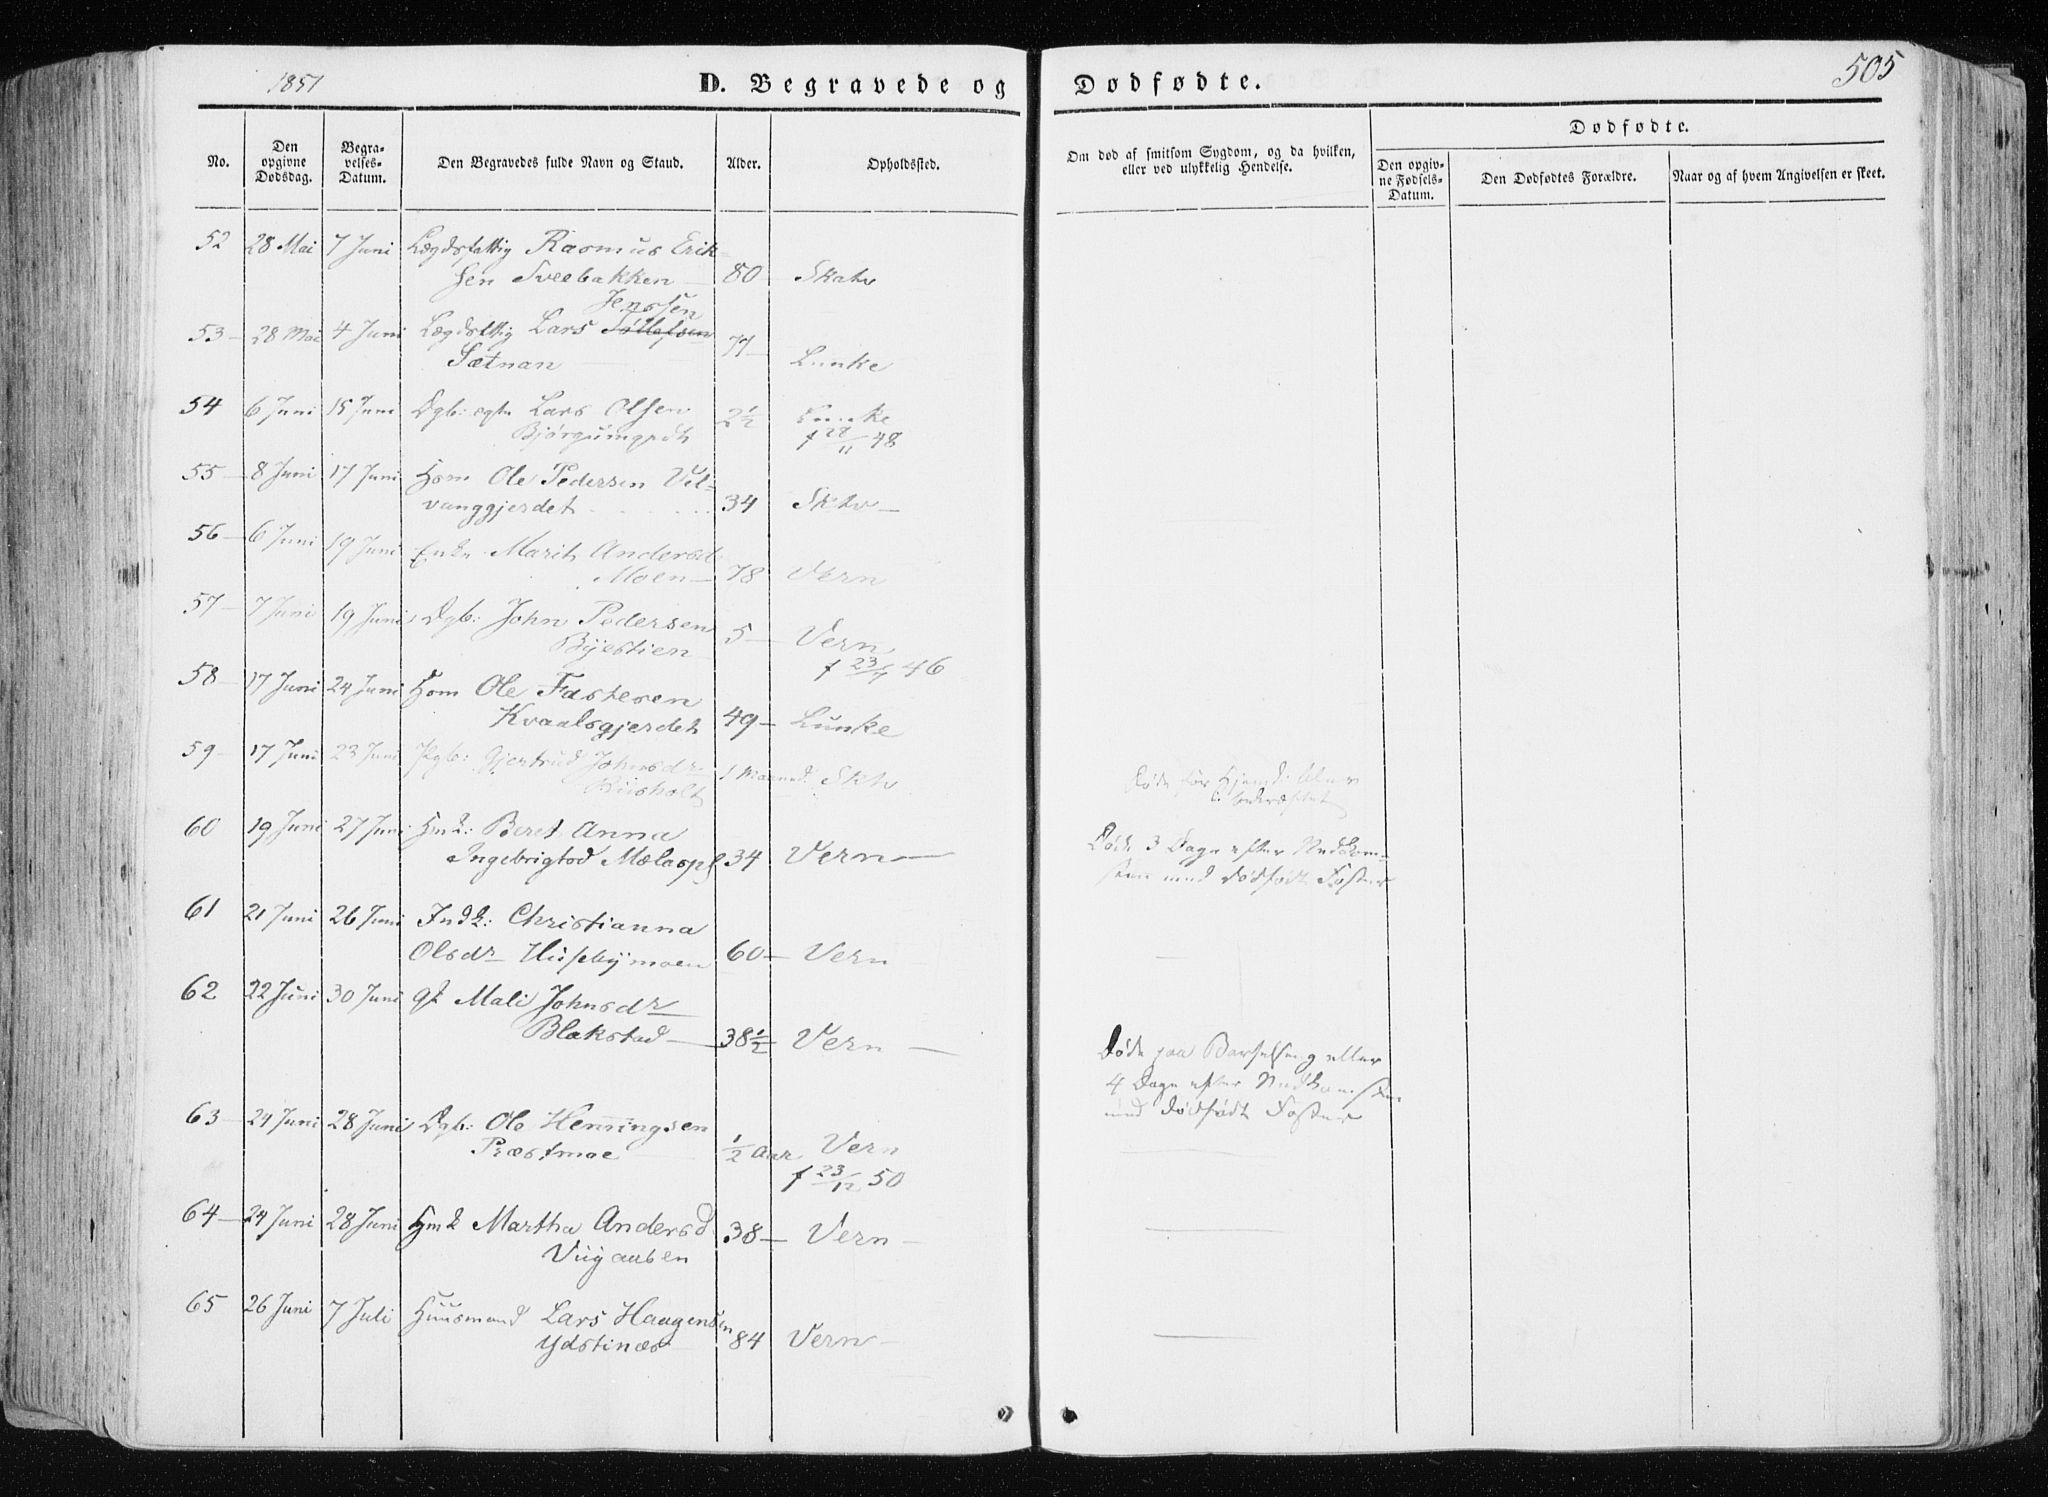 1851
D. Begravede og Dødfødte.
505
No.
Den opgivne Dødsdag.
Begravelses-Datum.
Den Begravedes fulde Navn og Stand.
Alder.
Opholdssted.
Om død af smitsom Sygdom, og da hvilken, eller ved ulykkelig Hendelse.
Dødfødte.
Den opgivne Fødsels-Datum.
Den Dødfødtes Forældre.
Naar og af hvem Angivelsen er skeet.
52 28 Mai 7 Juni Lægdsfattig Rasmus Erik
sen Sveebakken 80 Skatv
Jenssen
53 28 Mai 4 Juni Lars
Sætnan 77 Lunke
54 6 Juni 15 Juni Dgb: Lars Olsen 2½ Lunke
f 28/11 48
55 8 Juni 17 Juni Hom Ole Pedersen Vel=
vanggjerdet 34 Sktv
56 6 Juni 19 Juni Enke Marith Andersd
Moen 78 Vern
57 7 Juni 19 Juni Dgb: John Pedersen 5 Vern
Byestien f 23/7 46
58 17 Juni 24 Juni Hom Ole Fastesen
Kvaalsgjerdet 49 Lunke
59 17 Juni 23 Juni Pgb: Gjertrud Johnsdr 1 Maaned Sktv
60 19 Juni 27 Juni Hmk: Beret Anna
Ingebrigtsd Mælaspl 34 Vern
Døde 3 Dage efter Nedkom=
sten med dødfødt Foster
61 21 Juni 26 Juni Indk: Christianna
Olsdr Husebymoen 60 Vern
62 22 Juni 30 Juni gk Mali Johnsdr
Blakstad 38½ Vern
Døde paa Barselseng eller
4 Dage efter Nedkomsten
med dødfødt Foster
63 24 Juni 28 Juni Dgb: Ole Henningsen
Præstmoe ½ Aar Vern
f 23/12 50
64 24 Juni 28 Juni Hmk Martha Andersd 38 Vern
65 26 Juni 7 Juli Huusmand Lars Haagensen
Ydstinæs 84 Vern